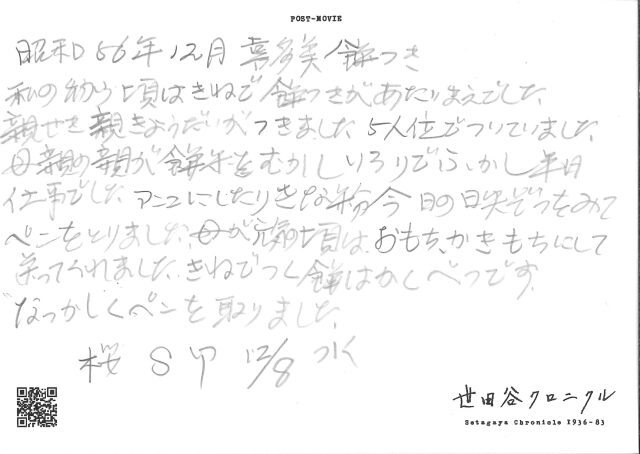 POST-MOVIE
昭和56年12月 喜多美 餅つき
私の幼い頃はきねで餅つきがあたりまえでした、
親せき親きょうだいがつきました、5人位でついていました、
母親の親が餅米をむかしいろりでふかし半日
仕事でした、アンコにしたりきな粉 今日の映ぞうをみて
ペンをとりました、母が元気な頃は、おもち、かきもちにして
送ってくれました、きねでつく餅はかくべつです。
なつかしくペンを取りました、
桜 S 甲 12/8 水
世田谷クロニクル
Setagaya Chronicle 1936-83